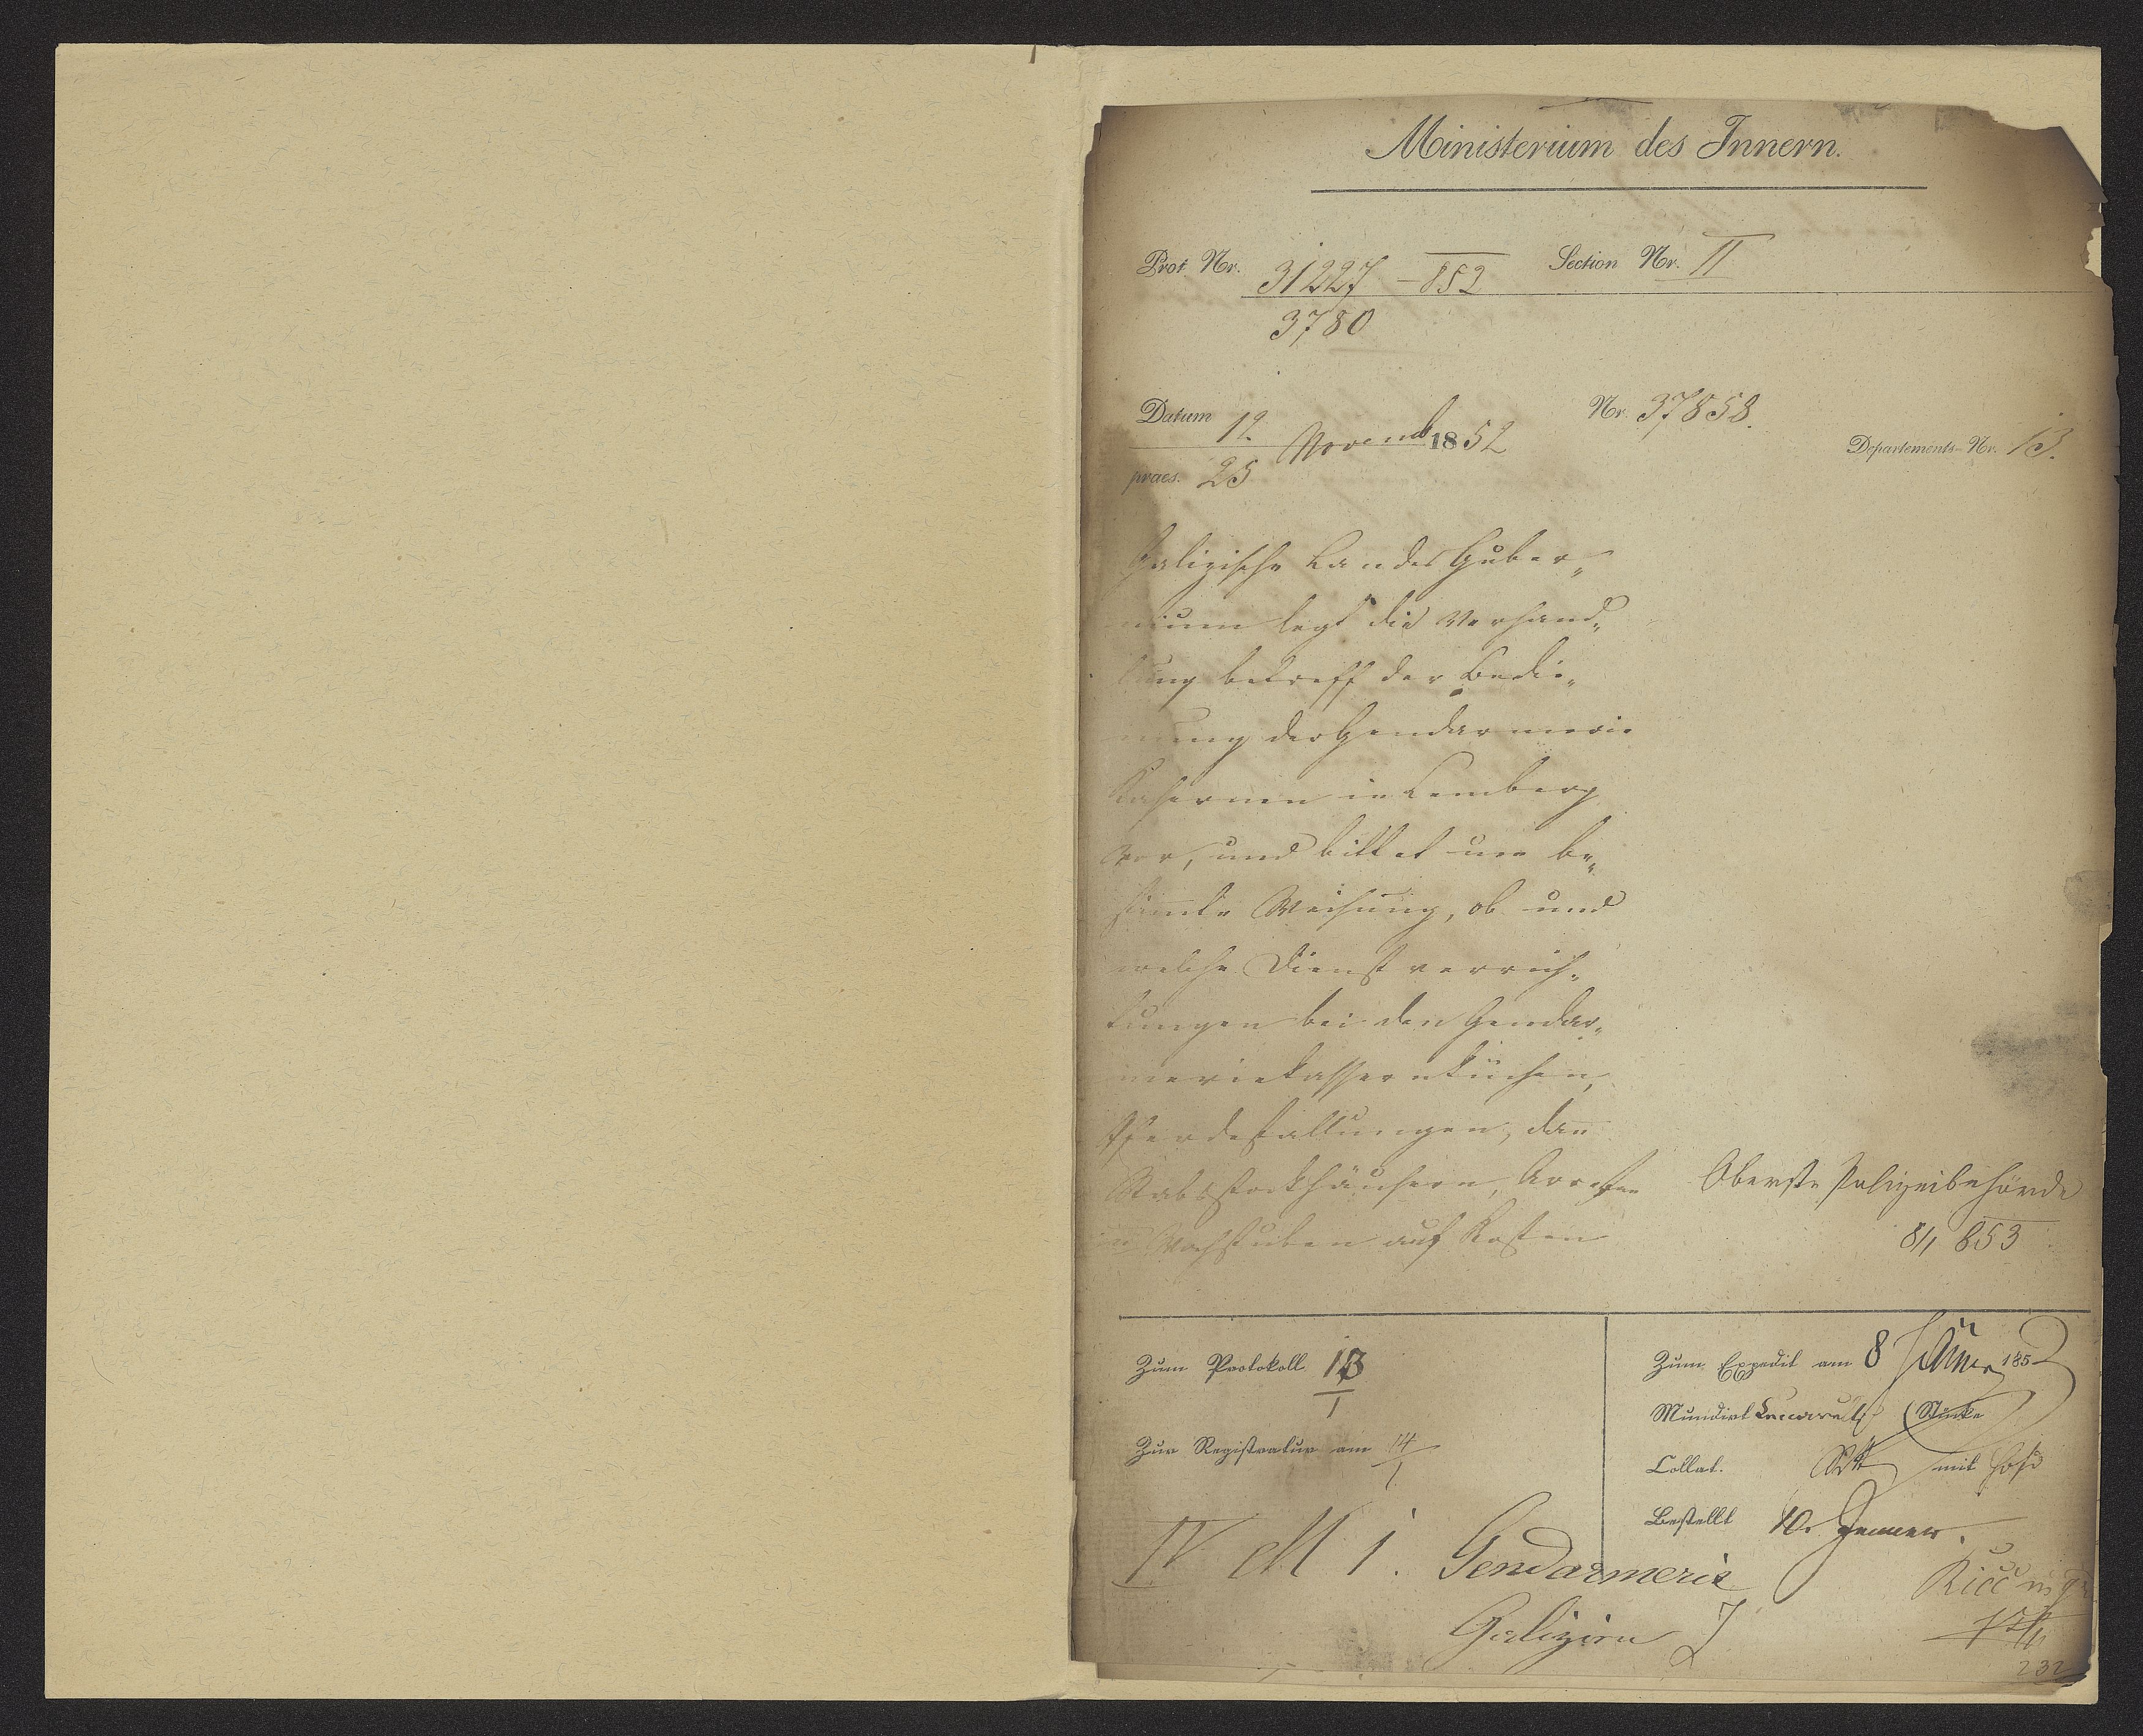 Ministerium des Innern.
Prot. Nr. 31227 – 852 Section Nr. II
3780
Datum 12. Novemb 1852 Nr. 37858.
Departements-Nr. 13.
praes. 25
Galizische Landes Guber„
nium legt die Verhand„
lung betreff der Bedie„
nung der Gendarmerie
Kasernen in Lemberg
vor, und bittet um be„
stimte Weisung, ob und
welche Dienst verrich„
tungen bei den Gendar„
meriekassernküchen,
Pferdestallungen, dan
Stabsstockhäusern, Arresten
u Wachstuben auf Kosten
Oberste Polizeibehörde
8/1 853
Zum Protokoll 13
I
Zur Registratur am 14
1
Zum Expedit am 8 Jäner 185
Mundirt
Collat. mit
Bestellt 10. Jenner.
IV M 1. Gendarmerie
Galizien
232